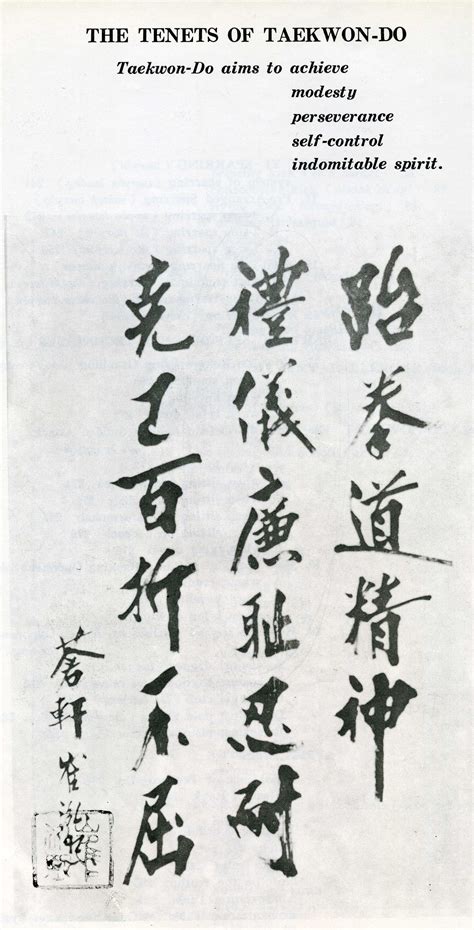 THE TENETS OF TAEKWON-DO
Taekwon-Do aims to achieve
modesty
perseverance
self-control
indomitable spirit.
跆拳道精神
禮儀廉耻忍耐
克己百折不屈
蒼軒崔泓熙